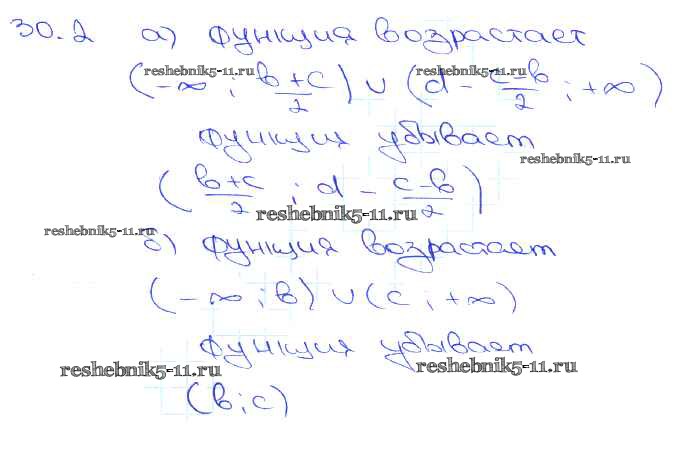 30.2 а) функция возрастает
reshebnik5-11.ru reshebnik5-11.ru
(-∞; (в+с)/2) ∪ (d - (с-в)/2; +∞)
функция убывает
reshebnik5-11.ru
((в+с)/2; d - (с-в)/2)
reshebnik5-11.ru
reshebnik5-11.ru
б) функция возрастает
(-∞; в) ∪ (с; +∞)
функция убывает
reshebnik5-11.ru reshebnik5-11.ru
(в; с)